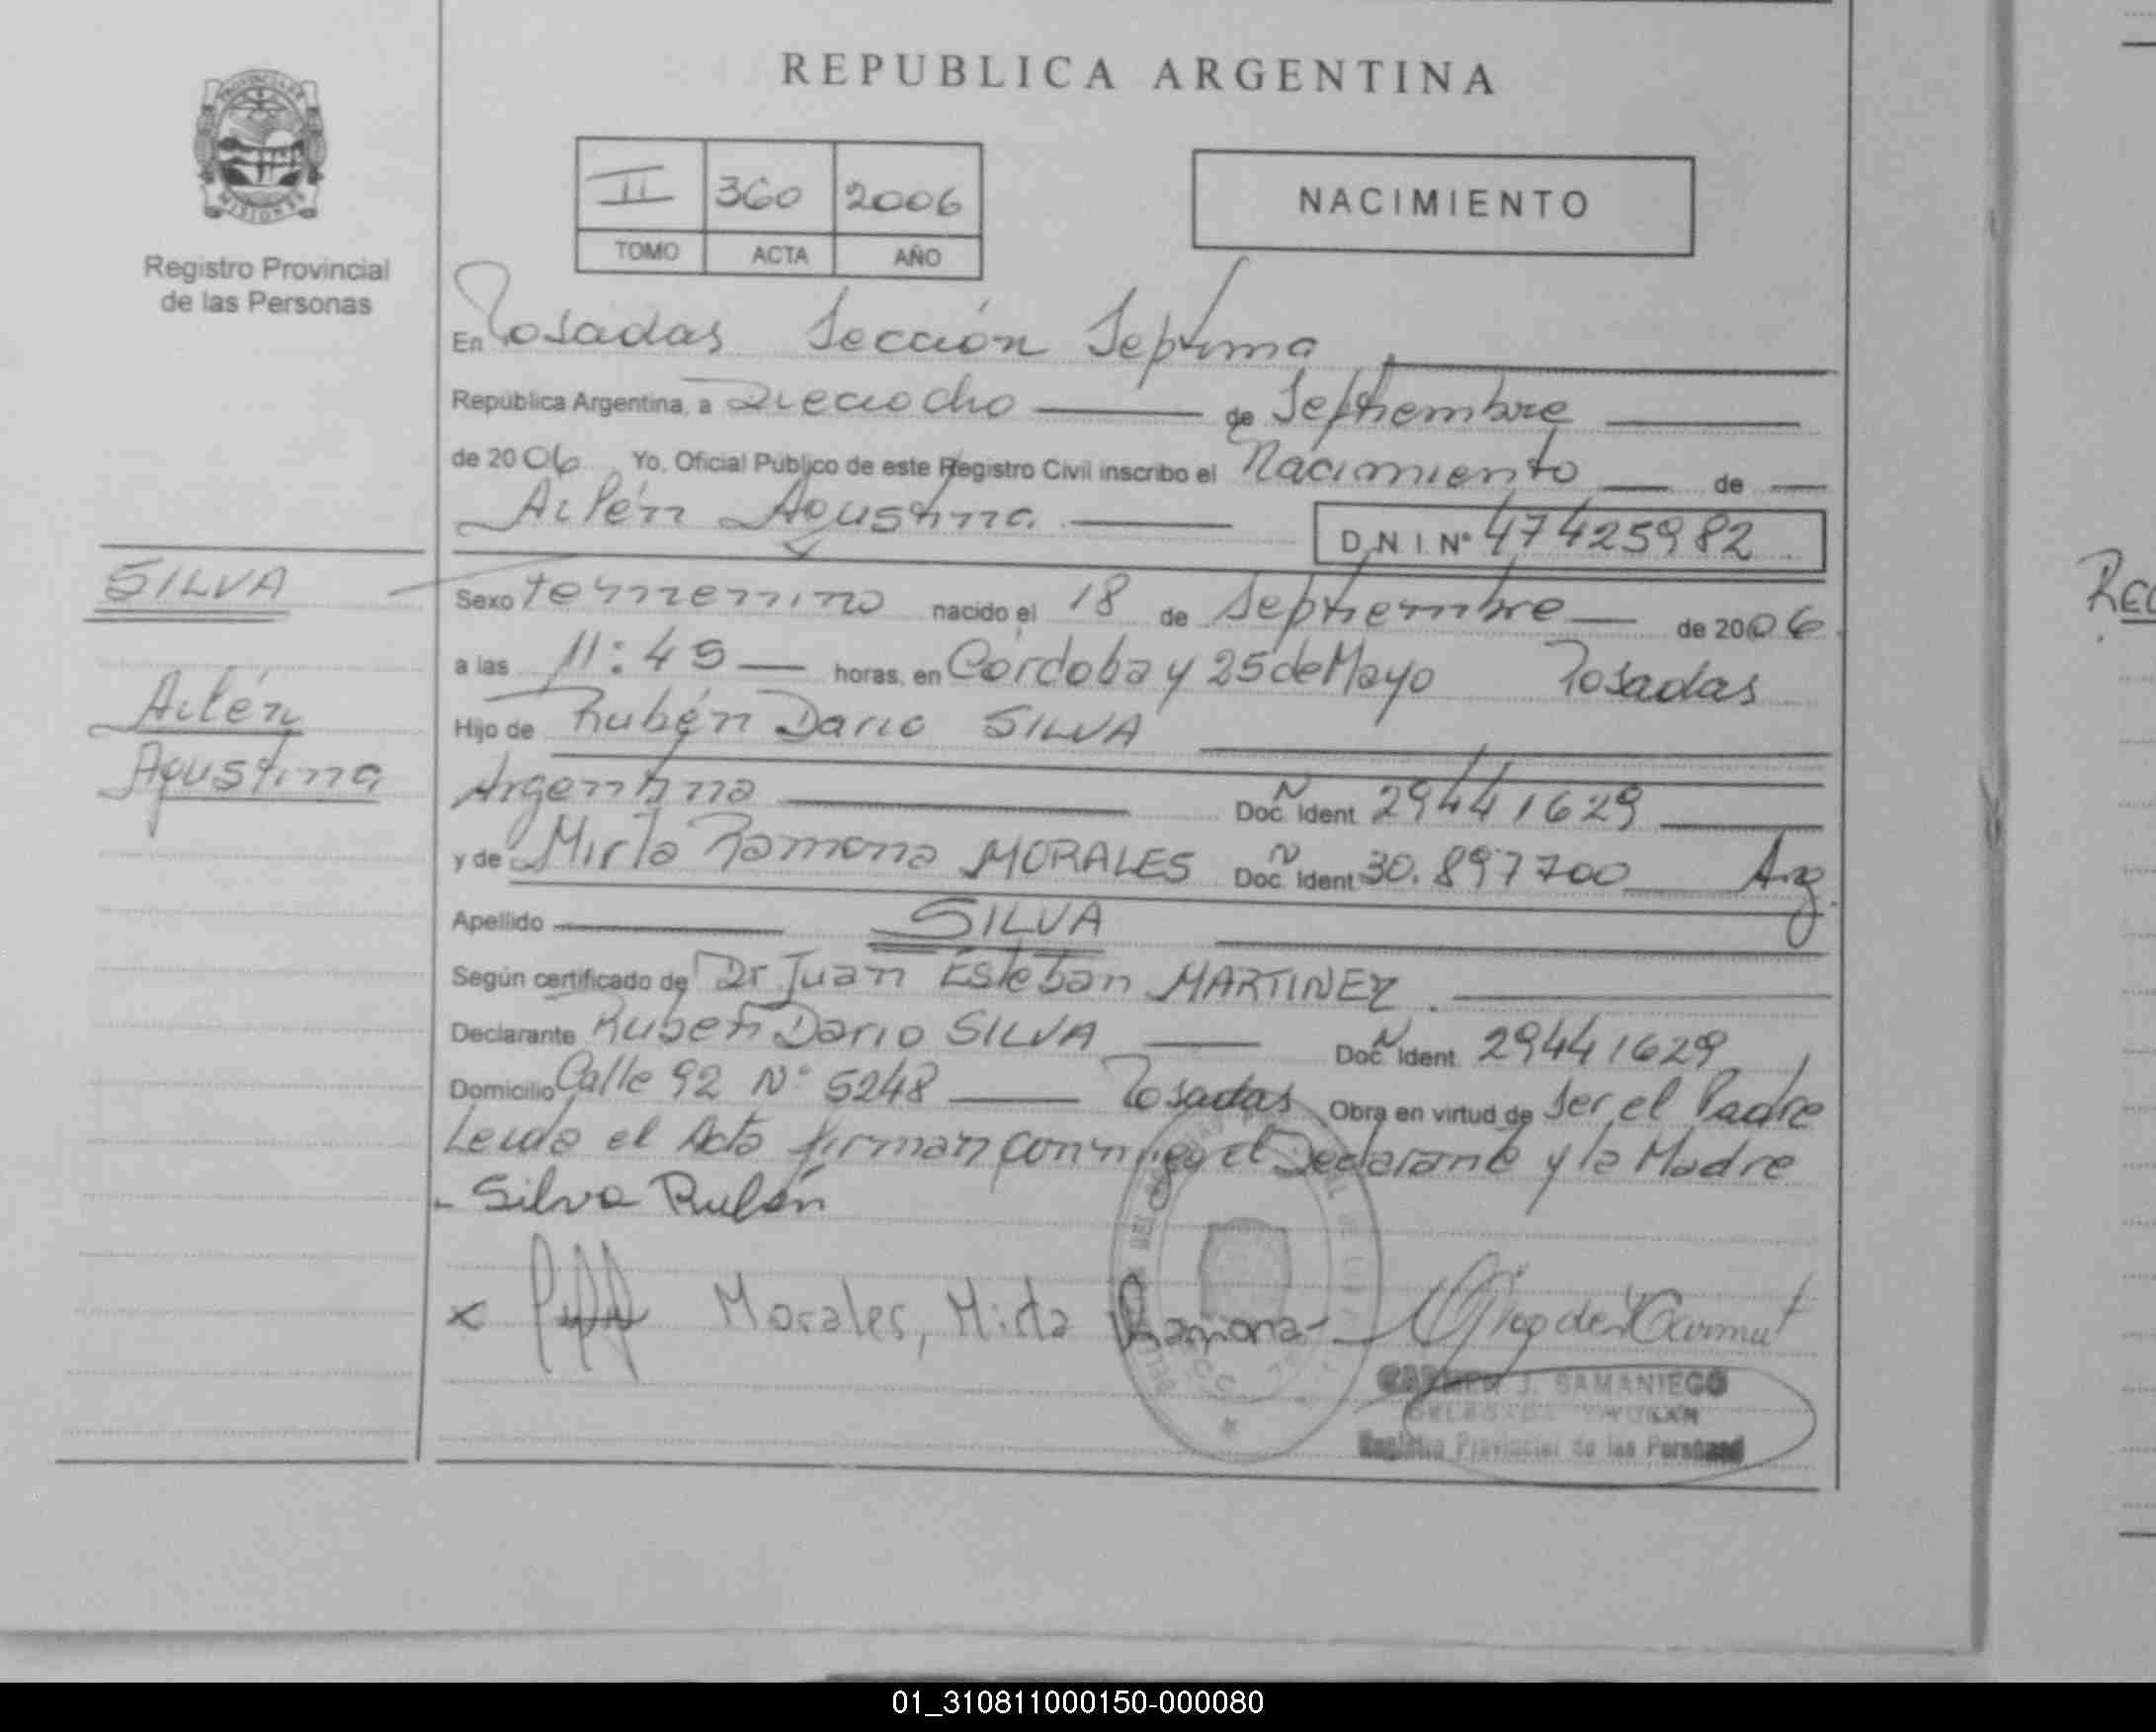 REPUBLICA ARGENTINA
PROVINCIA DE
MISIONES
Registro Provincial
de las Personas
II 360 2006
TOMO ACTA AÑO
NACIMIENTO
En Posadas Sección Septima
República Argentina, a Dieciocho de Septiembre
de 2006 Yo, Oficial Público de este Registro Civil inscribo el Nacimiento de
Ailén Agustina D.N.I. Nº 47425982
SILVA
Ailén
Agustina
Sexo femenino nacido el 18 de Septiembre de 2006
a las 11:45 horas, en Cordoba y 25 de Mayo Posadas
Hijo de Rubén Dario SILVA
Argentina Doc. Ident. Nº 29441629
y de Mirta Ramona MORALES Doc. Ident. Nº 30.897700 Arg.
Apellido SILVA
Según certificado de Dr Juan Esteban MARTINEZ
Declarante Ruben Dario SILVA Doc. Ident. Nº 29441629
Domicilio Calle 92 Nº 5248 Posadas Obra en virtud de Ser el Padre
Leida el Acta firman conmigo el Declarante y la Madre
- Silva Rubén
x Morales, Mirta Ramona-
J. SAMANIEGO
Registro Provincial de las Personas
01_310811000150-000080